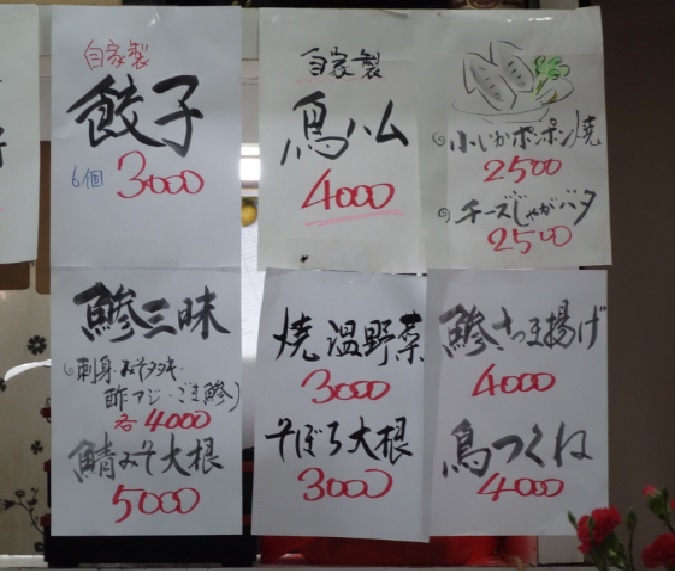 自家製
餃子
6個 3000
自家製
鳥ハム
4000
小いかポンポン焼
2500
チーズじゃがバタ
2500
鯵三昧
(刺身・みそタタキ・
酢アジ・ごま鯵)
各4000
鯖みそ大根
5000
焼温野菜
3000
そぼろ大根
3000
鯵さつま揚げ
4000
鳥つくね
4000